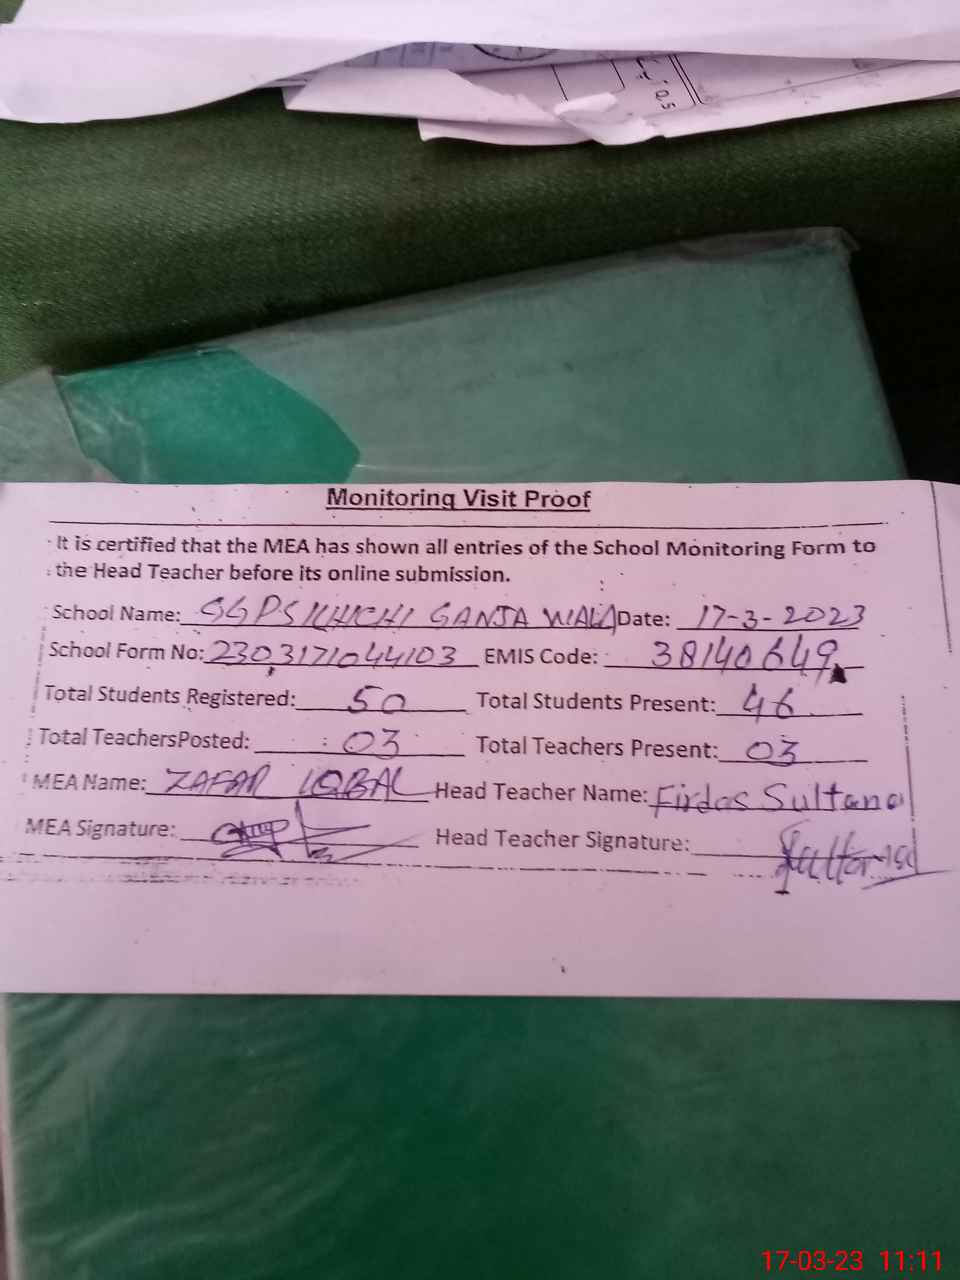 0.5
Monitoring Visit Proof
It is certified that the MEA has shown all entries of the School Monitoring Form to
the Head Teacher before its online submission.
School Name: GGPS KHICHI GANJA WALA Date: 17-3-2023
School Form No: 2303171044103 EMIS Code: 38140649
Total Students Registered: 50 Total Students Present: 46
Total TeachersPosted: 03 Total Teachers Present: 03
MEA Name: ZAFAR IQBAL Head Teacher Name: Firdos Sultana
MEA Signature: Head Teacher Signature:
17-03-23 11:11